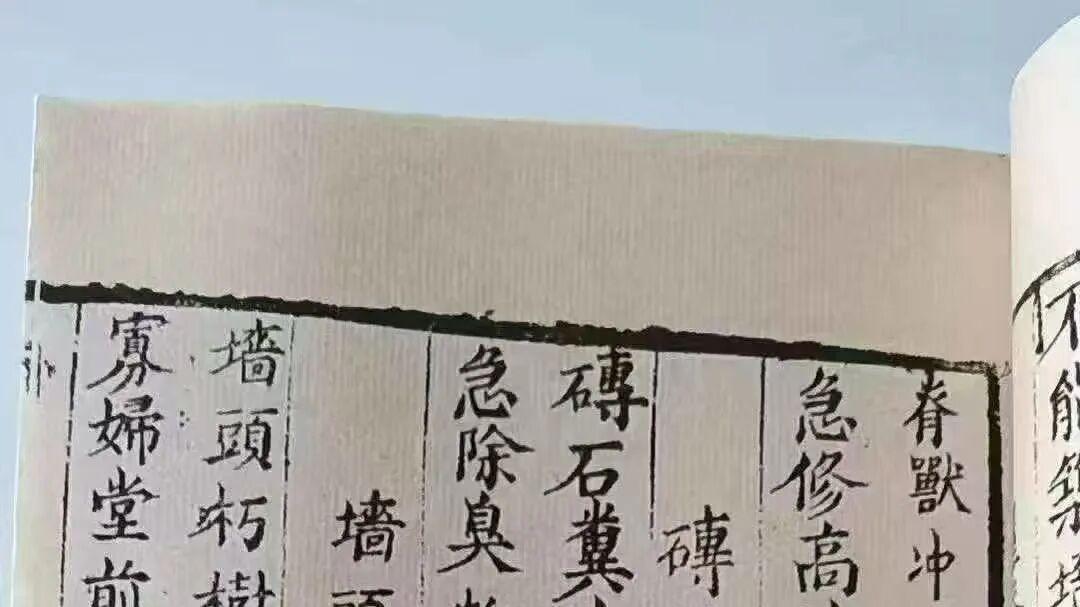 不能築墻
脊獸冲
急修高
磚
磚石糞
急除臭
墻頭
墻頭朽樹
寡婦堂前